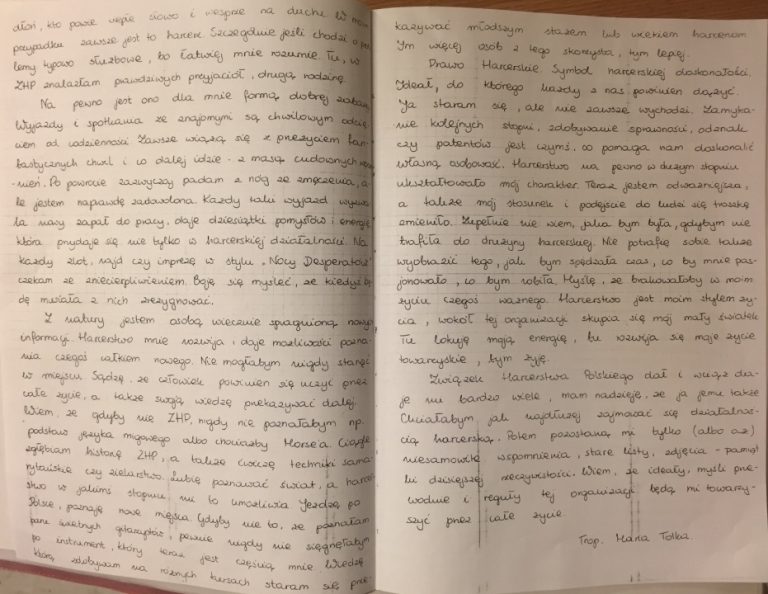 dłoń, kto powie ciepłe słowo i wesprze na duchu. W moim
przypadku zawsze jest to harcerz. Szczególnie jeśli chodzi o pro-
lemy typowo służbowe, bo łatwiej mnie rozumie. Tu, w
ZHP znalazłam prawdziwych przyjaciół, drugą rodzinę.
Na pewno jest ono dla mnie formą dobrej zabawy
Wyjazdy i spotkania ze znajomymi są chwilowym odcię-
ciem od codzienności. Zawsze wiążą się z przeżyciem fan-
tastycznych chwil i co dalej idzie - z masą cudownych wspo-
mnień. Po powrocie zazwyczaj padam z nóg ze zmęczenia, a-
le jestem naprawdę zadowolona. Każdy taki wyjazd wyzwa-
la nowy zapał do pracy, daje dziesiątki pomysłów i energię
która przydaje się nie tylko w harcerskiej działalności. Na
każdy zlot, rajd czy imprezę w stylu „Nocy Desperatów"
czekam ze zniecierpliwieniem. Boję się myśleć, że kiedyś bę-
dę musiała z nich zrezygnować.
Z natury jestem osobą wiecznie spragnioną nowych
informacji. Harcerstwo mnie rozwija i daje możliwości pozna-
nia czegoś całkiem nowego. Nie mogłabym nigdy stanąć
w miejscu. Sądzę, że człowiek powinien się uczyć przez
całe życie, a także swoją wiedzę przekazywać dalej.
Wiem, że gdyby nie ZHP, nigdy nie poznałabym np.
podstaw języka migowego albo chociażby Morse'a. Ciągle
zgłębiam historię ZHP, a także ćwiczę techniki sama-
rytańskie czy zielarstwo. Lubię poznawać świat, a harcer-
stwo w jakimś stopniu mi to umożliwia. Jeżdżę po
Polsce, poznaję nowe miejsca. Gdyby nie to, że poznałam
parę świetnych gitarzystów, pewnie nigdy nie sięgnęłabym
po instrument, który teraz jest częścią mnie. Wiedzę
którą zdobywam na różnych kursach staram się prze-
kazywać młodszym stażem lub wiekiem harcerzom
Im więcej osób z tego skorzysta, tym lepiej.
Prawo Harcerskie. Symbol harcerskiej doskonałości.
Ideał, do którego każdy z nas powinien dążyć.
Ja staram się, ale nie zawsze wychodzi. Zamyka-
nie kolejnych stopni, zdobywanie sprawności, odznak
czy patentów jest czymś, co pomaga nam doskonalić
własną osobowość. Harcerstwo na pewno w dużym stopniu
ukształtowało mój charakter. Teraz jestem odważniejsza,
a także mój stosunek i podejście do ludzi się troszkę
zmieniło. Zupełnie nie wiem, jaka bym była, gdybym nie
trafiła do drużyny harcerskiej. Nie potrafię sobie także
wyobrazić tego, jak bym spędzała czas, co by mnie pas-
jonowało, co bym robiła. Myślę, że brakowałoby w moim
życiu czegoś ważnego. Harcerstwo jest moim stylem ży-
cia, wokół tej organizacji skupia się mój mały światek
Tu lokuję moją energię, tu rozwija się moje życie
towarzyskie, tym żyję.
Związek Harcerstwa Polskiego dał i wciąż da-
je mi bardzo wiele, mam nadzieję, że ja jemu także
Chciałabym jak najdłużej zajmować się działalnoś-
cią harcerską. Potem pozostaną mi tylko (albo aż)
niesamowite wspomnienia, stare listy, zdjęcia - pamiąt
ki dzisiejszej rzeczywistości. Wiem, że ideały, myśli prze-
wodnie i reguły tej organizacji będą mi towarzy-
szyć przez całe życie.
Trop. Maria Tolka.